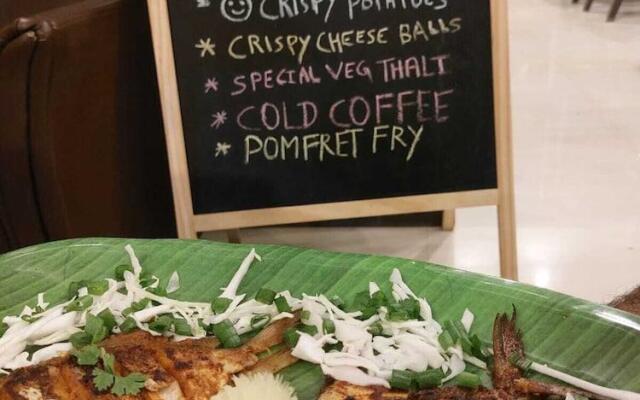 * CRISPY POTATOES
* CRISPY CHEESE BALLS
* SPECIAL VEG THALI
* COLD COFFEE
* POMFRET FRY